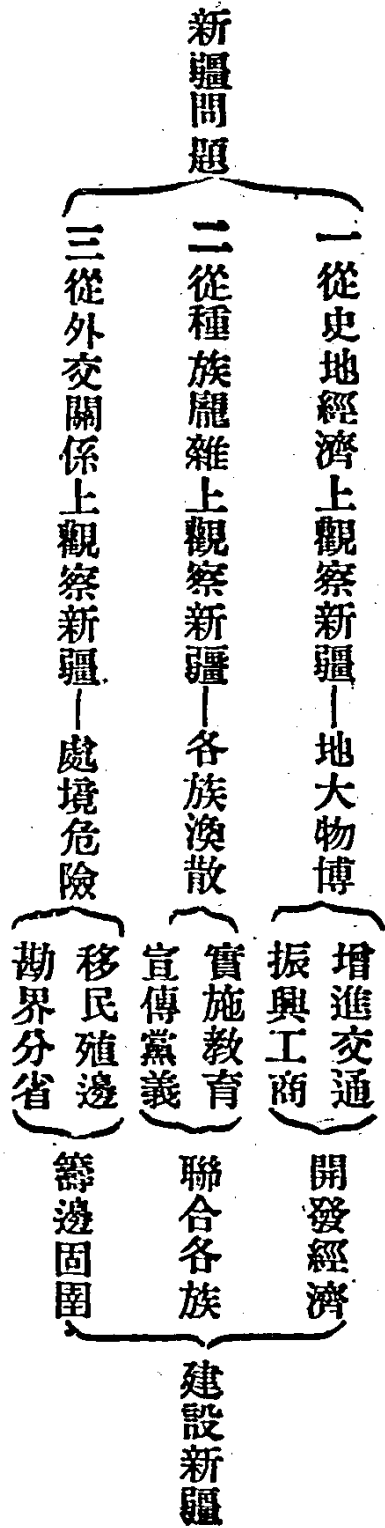 新疆問題
一從史地經濟上觀察新疆—地大物博
增進交通
振興工商
開發經濟
二從種族龐雜上觀察新疆—各族渙散
實施教育
宣傳黨義
聯合各族
三從外交關係上觀察新疆—處境危險
移民殖邊
勘界分省
籌邊固圉
建設新疆